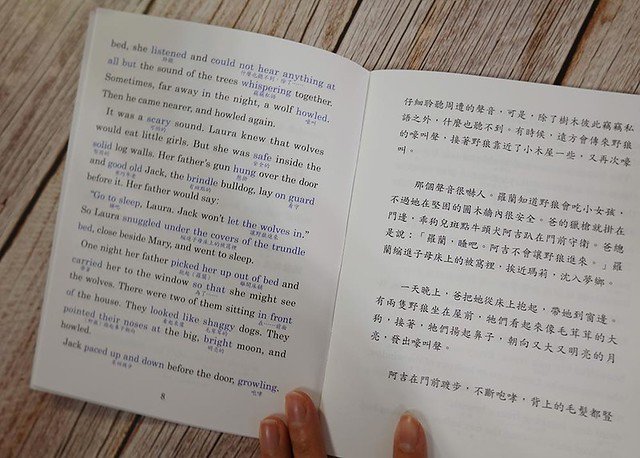 bed, she listened and could not hear anything at
all but the sound of the trees whispering together.
Sometimes, far away in the night, a wolf howled.
Then he came nearer, and howled again.
It was a scary sound. Laura knew that wolves
would eat little girls. But she was safe inside the
solid log walls. Her father's gun hung over the door
and good old Jack, the brindle bulldog, lay on guard
before it. Her father would say:
"Go to sleep, Laura. Jack won't let the wolves in."
So Laura snuggled under the covers of the trundle
bed, close beside Mary, and went to sleep.
One night her father picked her up out of bed and
carried her to the window so that she might see
the wolves. There were two of them sitting in front
of the house. They looked like shaggy dogs. They
pointed their noses at the big, bright moon, and
howled.
Jack paced up and down before the door, growling.
8
仔細聆聽周遭的聲音,可是,除了樹木彼此竊竊私
語之外,什麼也聽不到。有時候,遠方會傳來野狼
的嚎叫聲,接著野狼靠近了小木屋一些,又再次嚎
叫。
那個聲音很嚇人。羅蘭知道野狼會吃小女孩,
不過她在堅固的圓木牆內很安全。爸的獵槍就掛在
門邊,乖狗兒斑點牛頭犬阿吉趴在門前守衛。爸總
是說:「羅蘭,睡吧。阿吉不會讓野狼進來。」羅
蘭縮進子母床上的被窩裡,挨近瑪莉,沈入夢鄉。
一天晚上,爸把她從床上抱起,帶她到窗邊。
有兩隻野狼坐在屋前,牠們看起來像毛茸茸的大
狗,接著,牠們揚起鼻子,朝向又大又明亮的月
亮,發出嚎叫聲。
阿吉在門前踱步,不斷咆哮,背上的毛髮都豎